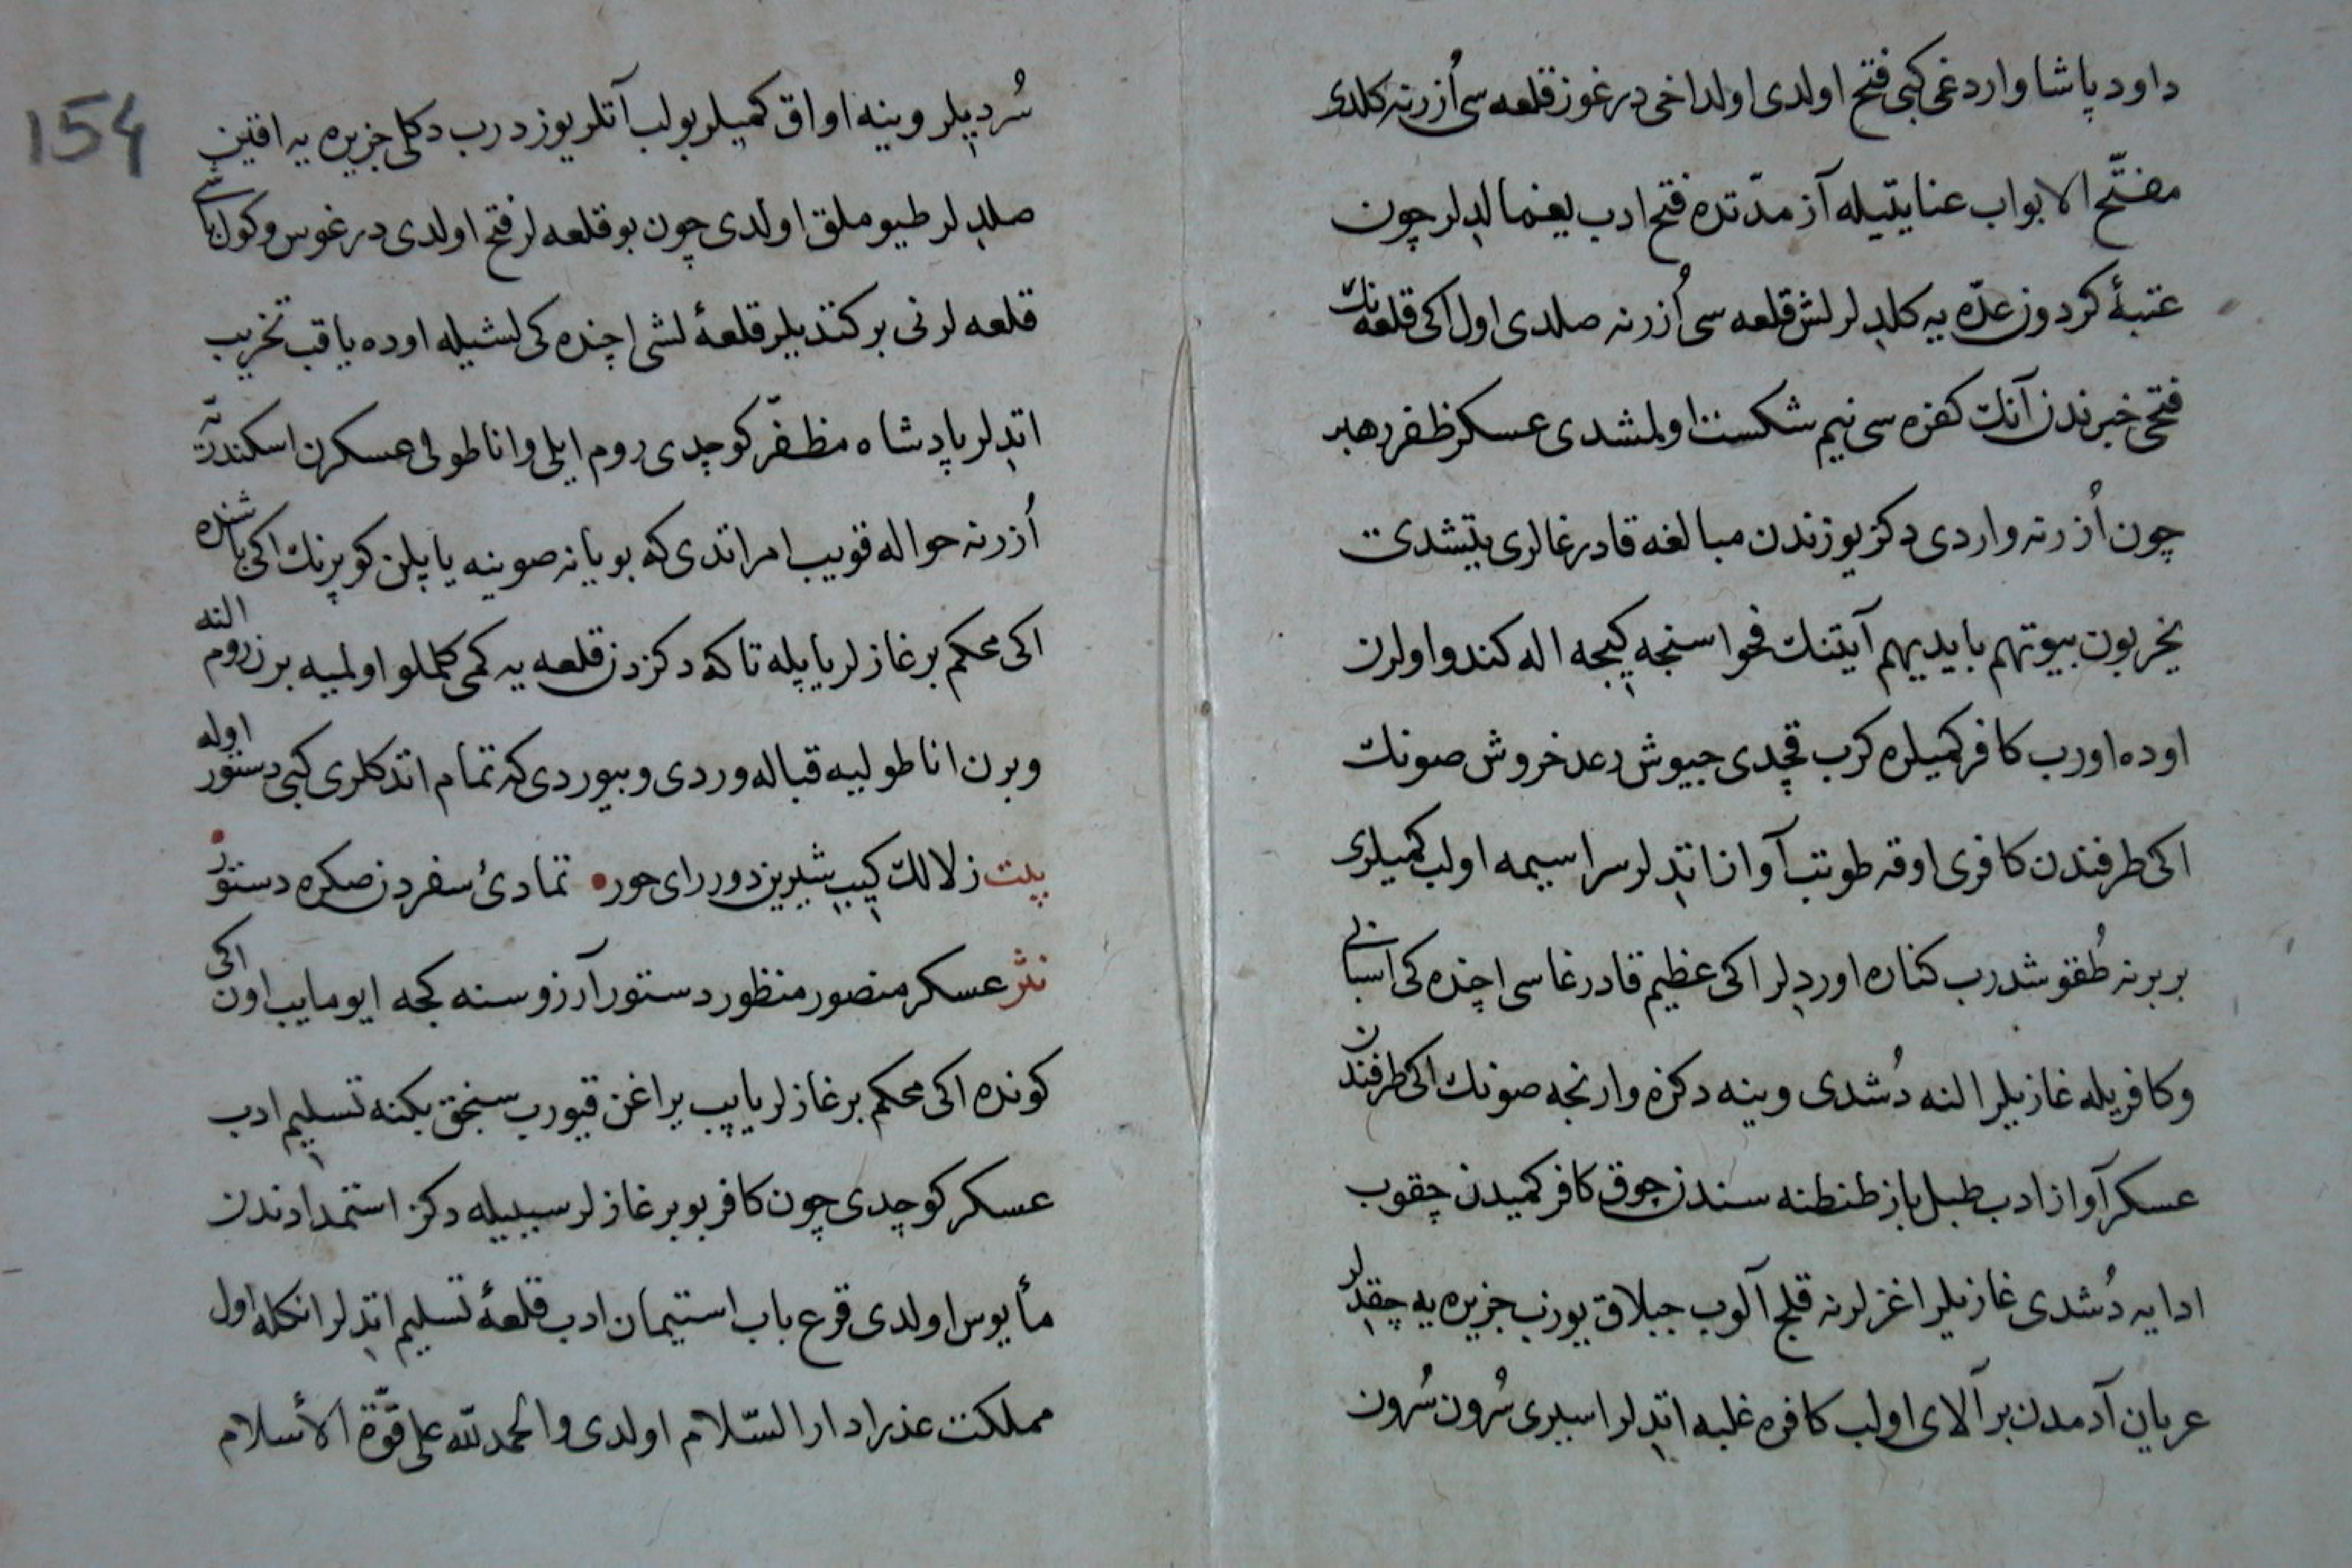 داود پاشا واردغی کبی فتح اولدی اولداخی درغوز قلعه سی اُزرنه کلدی
مفتّح الابواب عنایتیله آز مدّتده فتح ادب یغما الدلر چون
عتبهٔ کردون عدّه یه کلدلر لش قلعه سی اُزرنه صلدی اول اکی قلعه نك
فتحی خبرندن آنك کفره سی نیم شکست اولمشدی عسکر ظفر رهبر
چون اُزرنه واردی دکز یوزندن مبالغه قادرغالری یتیشدی
یخربون بیوتهم بایدیهم آیتنك فحواسنجه کیجه اله کندو اولرن
اوده اورب کافر کمیلره کرب قچدی جیوش رعد خروش صونك
اکی طرفندن کافری اوقه طوتب آواز اتدلر سراسیمه اولب کمیلری
بر برنه طُقوشدرب کناره اوردلر اکی عظیم قادرغاسی اچنده کی اسبابی
وکافریله غازیلر النه دُشدی وینه دکزه وارنجه صونك اکی طرفندن
عسکر آواز ادب طبل باز طنطنه سندن چوق کافر کمیدن چقوب
ادایه دُشدی غازیلر اغزلرنه قلج آلوب جبلاق یوزب جزیره یه چقدلر
عریان آدمدن بر آلای اولب کافره غلبه اتدلر اسیری سُرون سُرون
154
سُردیلر وینه اواق کمیلر بولب آتلر یوزدرب دکلی جزیره یه اقین
صلدلر طیوملق اولدی چون بو قلعه لر فتح اولدی درغوس وکول باشی
قلعه لرنی برکتدیلر قلعهٔ لشی اچنده کی لشیله اوده یاقب تخریب
اتدلر پادشاه مظفّر کوچدی روم ایلی واناطولی عسکرن اسکندریّه
اُزرنه حواله قویب امر اتدی که بویانه صوینه یاپلن کوپرنك اکی باشنده
اکی محکم برغازلر یاپیله تا که دکزدن قلعه یه کمی کلملو اولمیه برن روم النه
وبرن اناطولیه قباله وردی وبیوردی که تمام اتدکلری کبی دستور اوله
بیت زلالك کیب شیریندور رای حور • تمادیٔ سفردن صکره دستور •
نثر عسکر منصور منظور دستور آرزوسنه کجه ایومایب اون اکی
کونده اکی محکم برغازلر یاپیب یراغن قیورب سنجق بکنه تسلیم ادب
عسکر کوچدی چون کافر بو برغازلر سببیله دکز استمدادندن
مأیوس اولدی قرع باب استیمان ادب قلعهٔ تسلیم اتدلر انکله اول
مملکت عذرا دار السّلام اولدی والحمد للّه علی قوّة الأسلام